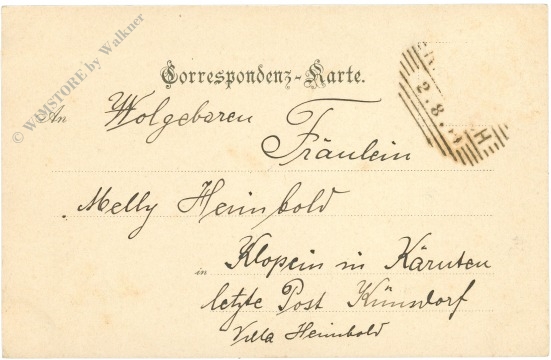 © WIMSTORE by Walkner
Correspondenz-Karte.
An Wolgebaren
Fräulein
Melly Heimbold
in Klopein in Kärnten
letzte Post Künsdorf
Villa Heimbold
2.8.
H